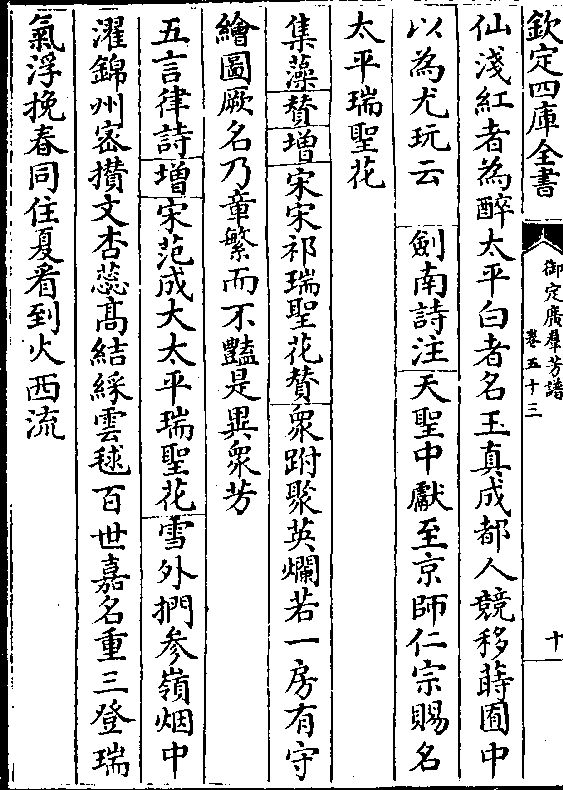 欽定四庫全書
御定廣羣芳譜
卷五十三
十
仙淺紅者為醉太平白者名玉真成都人競移蒔圃中
以為尤玩云　劍南詩注天聖中獻至京師仁宗賜名
太平瑞聖花
集藻贊增宋宋祁瑞聖花贊衆跗聚英爛若一房有守
繪圖厥名乃章繁而不豔是異衆芳
五言律詩增宋范成大太平瑞聖花雪外捫參嶺烟中
濯錦州宻攢文杏蕊髙結綵雲毬百世嘉名重三登瑞
氣浮挽春同住夏看到火西流